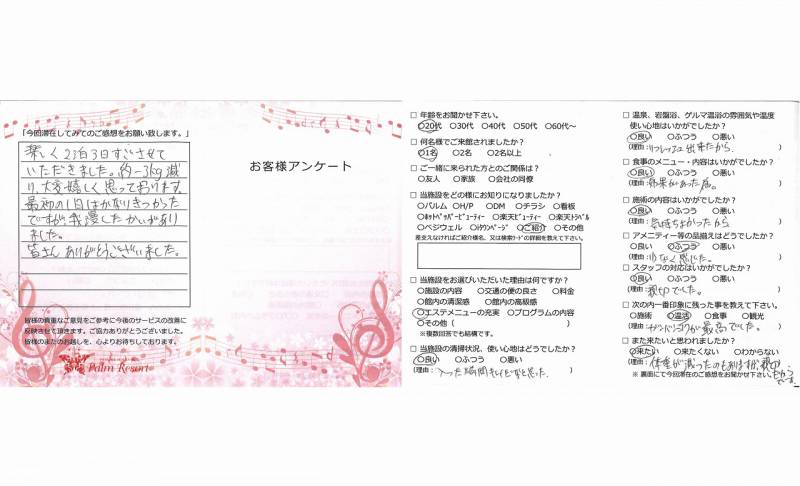 「今回滞在してみてのご感想をお願い致します。」
楽しく2泊3日すごさせて
いただきました。約-3kg減
り、大変嬉しく思っております。
最初の1日はかなりきつかった
ですが、我慢したかいがあり
ました。
皆さんありがとうございました。
皆様の貴重なご意見をご参考に今後のサービスの改善に
反映させて頂きます。ご協力ありがとうございました。
皆様のまたのお越しを、心よりお待ちしております。
Palm Resort
お客様アンケート
□ 年齢をお聞かせ下さい。
○20代 ○30代 ○40代 ○50代 ○60代～
□ 何名様でご来館されましたか?
○1名 ○2名 ○2名以上
□ ご一緒に来られた方とのご関係は?
○友人 ○家族 ○会社の同僚
□ 当施設をどの様にお知りになりましたか?
○パルム ○H/P ○DM ○チラシ ○看板
○ホットペッパービューティー ○楽天ビューティー ○楽天トラベル
○ベジウェル ○iタウンページ ○ご紹介 ○その他
差支えなければご紹介様名、又は検索ワードの詳細を教えて下さい。
□ 当施設をお選びいただいた理由は何ですか?
○施設の内容 ○交通の便の良さ ○料金
○館内の清潔感 ○館内の高級感
○エステメニューの充実 ○プログラムの内容
○その他 ( )
※複数回答でも結構です。
□ 当施設の清掃状況、使い心地はどうでしたか?
○良い ○ふつう ○悪い
(理由: 入った瞬間キレイだなと思った。 )
□ 温泉、岩盤浴、ゲルマ温浴の雰囲気や温度
使い心地はいかがでしたか?
○良い ○ふつう ○悪い
(理由: リフレッシュ出来たから. )
□ 食事のメニュー・内容はいかがでしたか?
○良い ○ふつう ○悪い
(理由: 効果があった為。 )
□ 施術の内容はいかがでしたか?
○良い ○ふつう ○悪い
(理由: 気持ちよかったから )
□ アメニティー等の品揃えはどうでしたか?
○良い ○ふつう ○悪い
(理由: 少なく感じた。 )
□ スタッフの対応はいかがでしたか?
○良い ○ふつう ○悪い
(理由: 親切でした。 )
□ 次の内一番印象に残った事を教えて下さい。
○施術 ○温活 ○食事 ○観光
(理由: が最高でした。 )
□ また来たいと思われましたか?
○来たい ○来たくない ○わからない
(理由: 体重が減ったのもあり 親切だから
※ 裏面にて今回滞在のご感想をお聞かせ下さい。